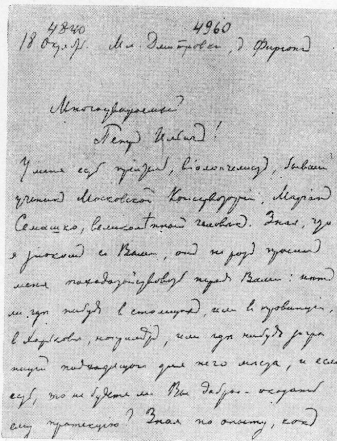 4840 4960
18 Октяб. Мл. Дмитровка, д. Фирганг
Многоуважаемый
Петр Ильич!
У меня есть приятель, виолончелист, бывший
ученик Московской Консерватории, Мариан
Семашко, великолепный человек. Зная, что
я знаком с Вами, он не раз просил
меня походатайствовать перед Вами: нет
ли где нибудь в столицах, или в провинции,
в Харькове, например, или где нибудь загра
ницей подходящего для него места, и если
есть, то не будете ли Вы добры оказать
ему протекцию? Зная по опыту, как